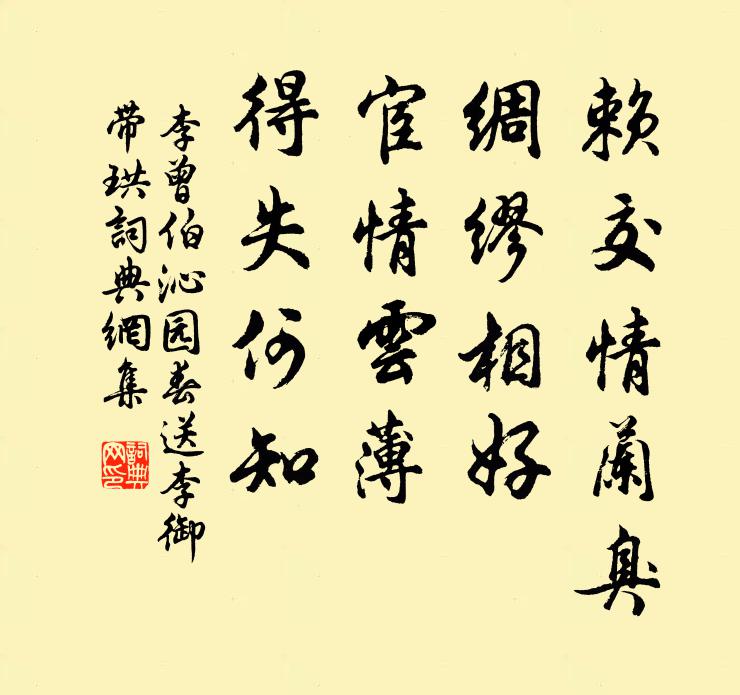 赖交情蘭臭
绸缪相好
宦情雲薄
得失何知
李曾伯沁园春送李御
带珙詞典網集
詞典网印